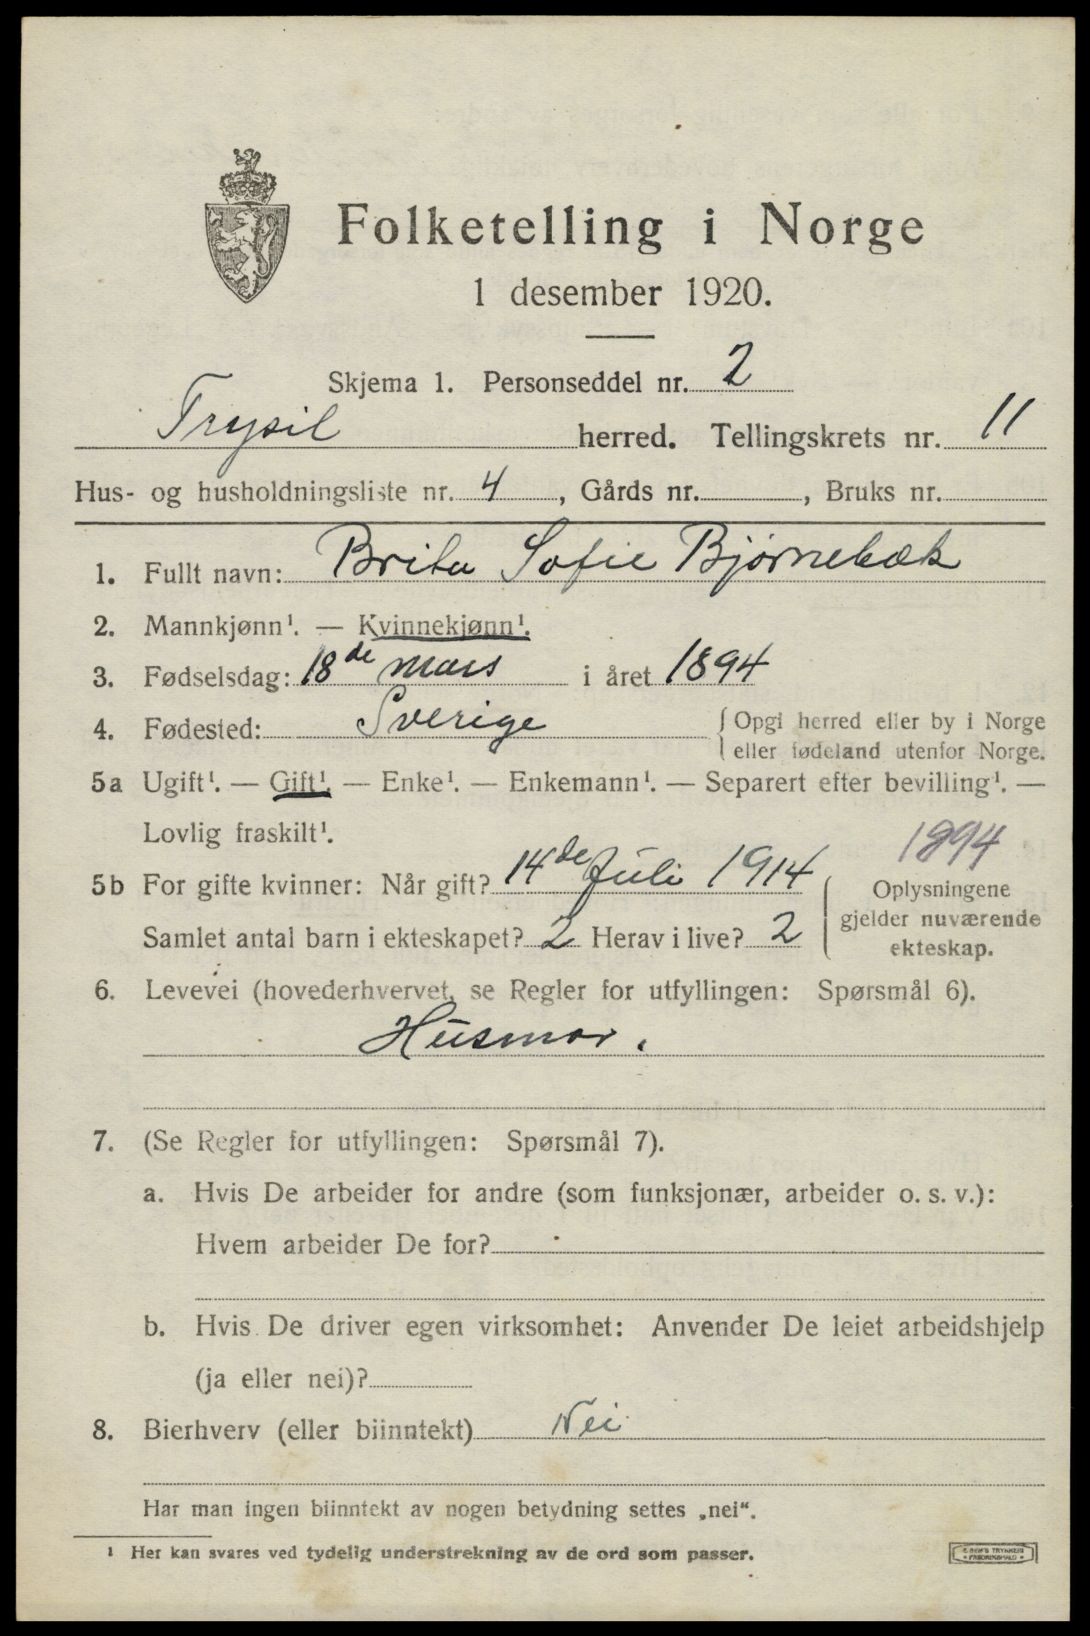 Folketelling i Norge
1 desember 1920.
Skjema 1. Personseddel nr. 2
Trysil herred. Tellingskrets nr. 11
Hus- og husholdningsliste nr. 4, Gårds nr. , Bruks nr.
1. Fullt navn: Brita Sofie Bjørnebæk
2. Mannkjønn¹. — Kvinnekjønn¹.
3. Fødselsdag: 18de mars i året 1894
4. Fødested: Sverige { Opgi herred eller by i Norge
eller fødeland utenfor Norge.
5a Ugift¹. — Gift¹. — Enke¹. — Enkemann¹. — Separert efter bevilling¹. —
Lovlig fraskilt¹.
1894
5b For gifte kvinner: Når gift? 14de Juli 1914
Samlet antal barn i ekteskapet? 2 Herav i live? 2
Oplysningene
gjelder nuværende
ekteskap.
6. Levevei (hovederhvervet, se Regler for utfyllingen: Spørsmål 6).
Husmor.
7. (Se Regler for utfyllingen: Spørsmål 7).
a. Hvis De arbeider for andre (som funksjonær, arbeider o. s. v.):
Hvem arbeider De for?
b. Hvis De driver egen virksomhet: Anvender De leiet arbeidshjelp
(ja eller nei)?
8. Bierhverv (eller biinntekt) Nei
Har man ingen biinntekt av nogen betydning settes „nei“.
¹ Her kan svares ved tydelig understrekning av de ord som passer.